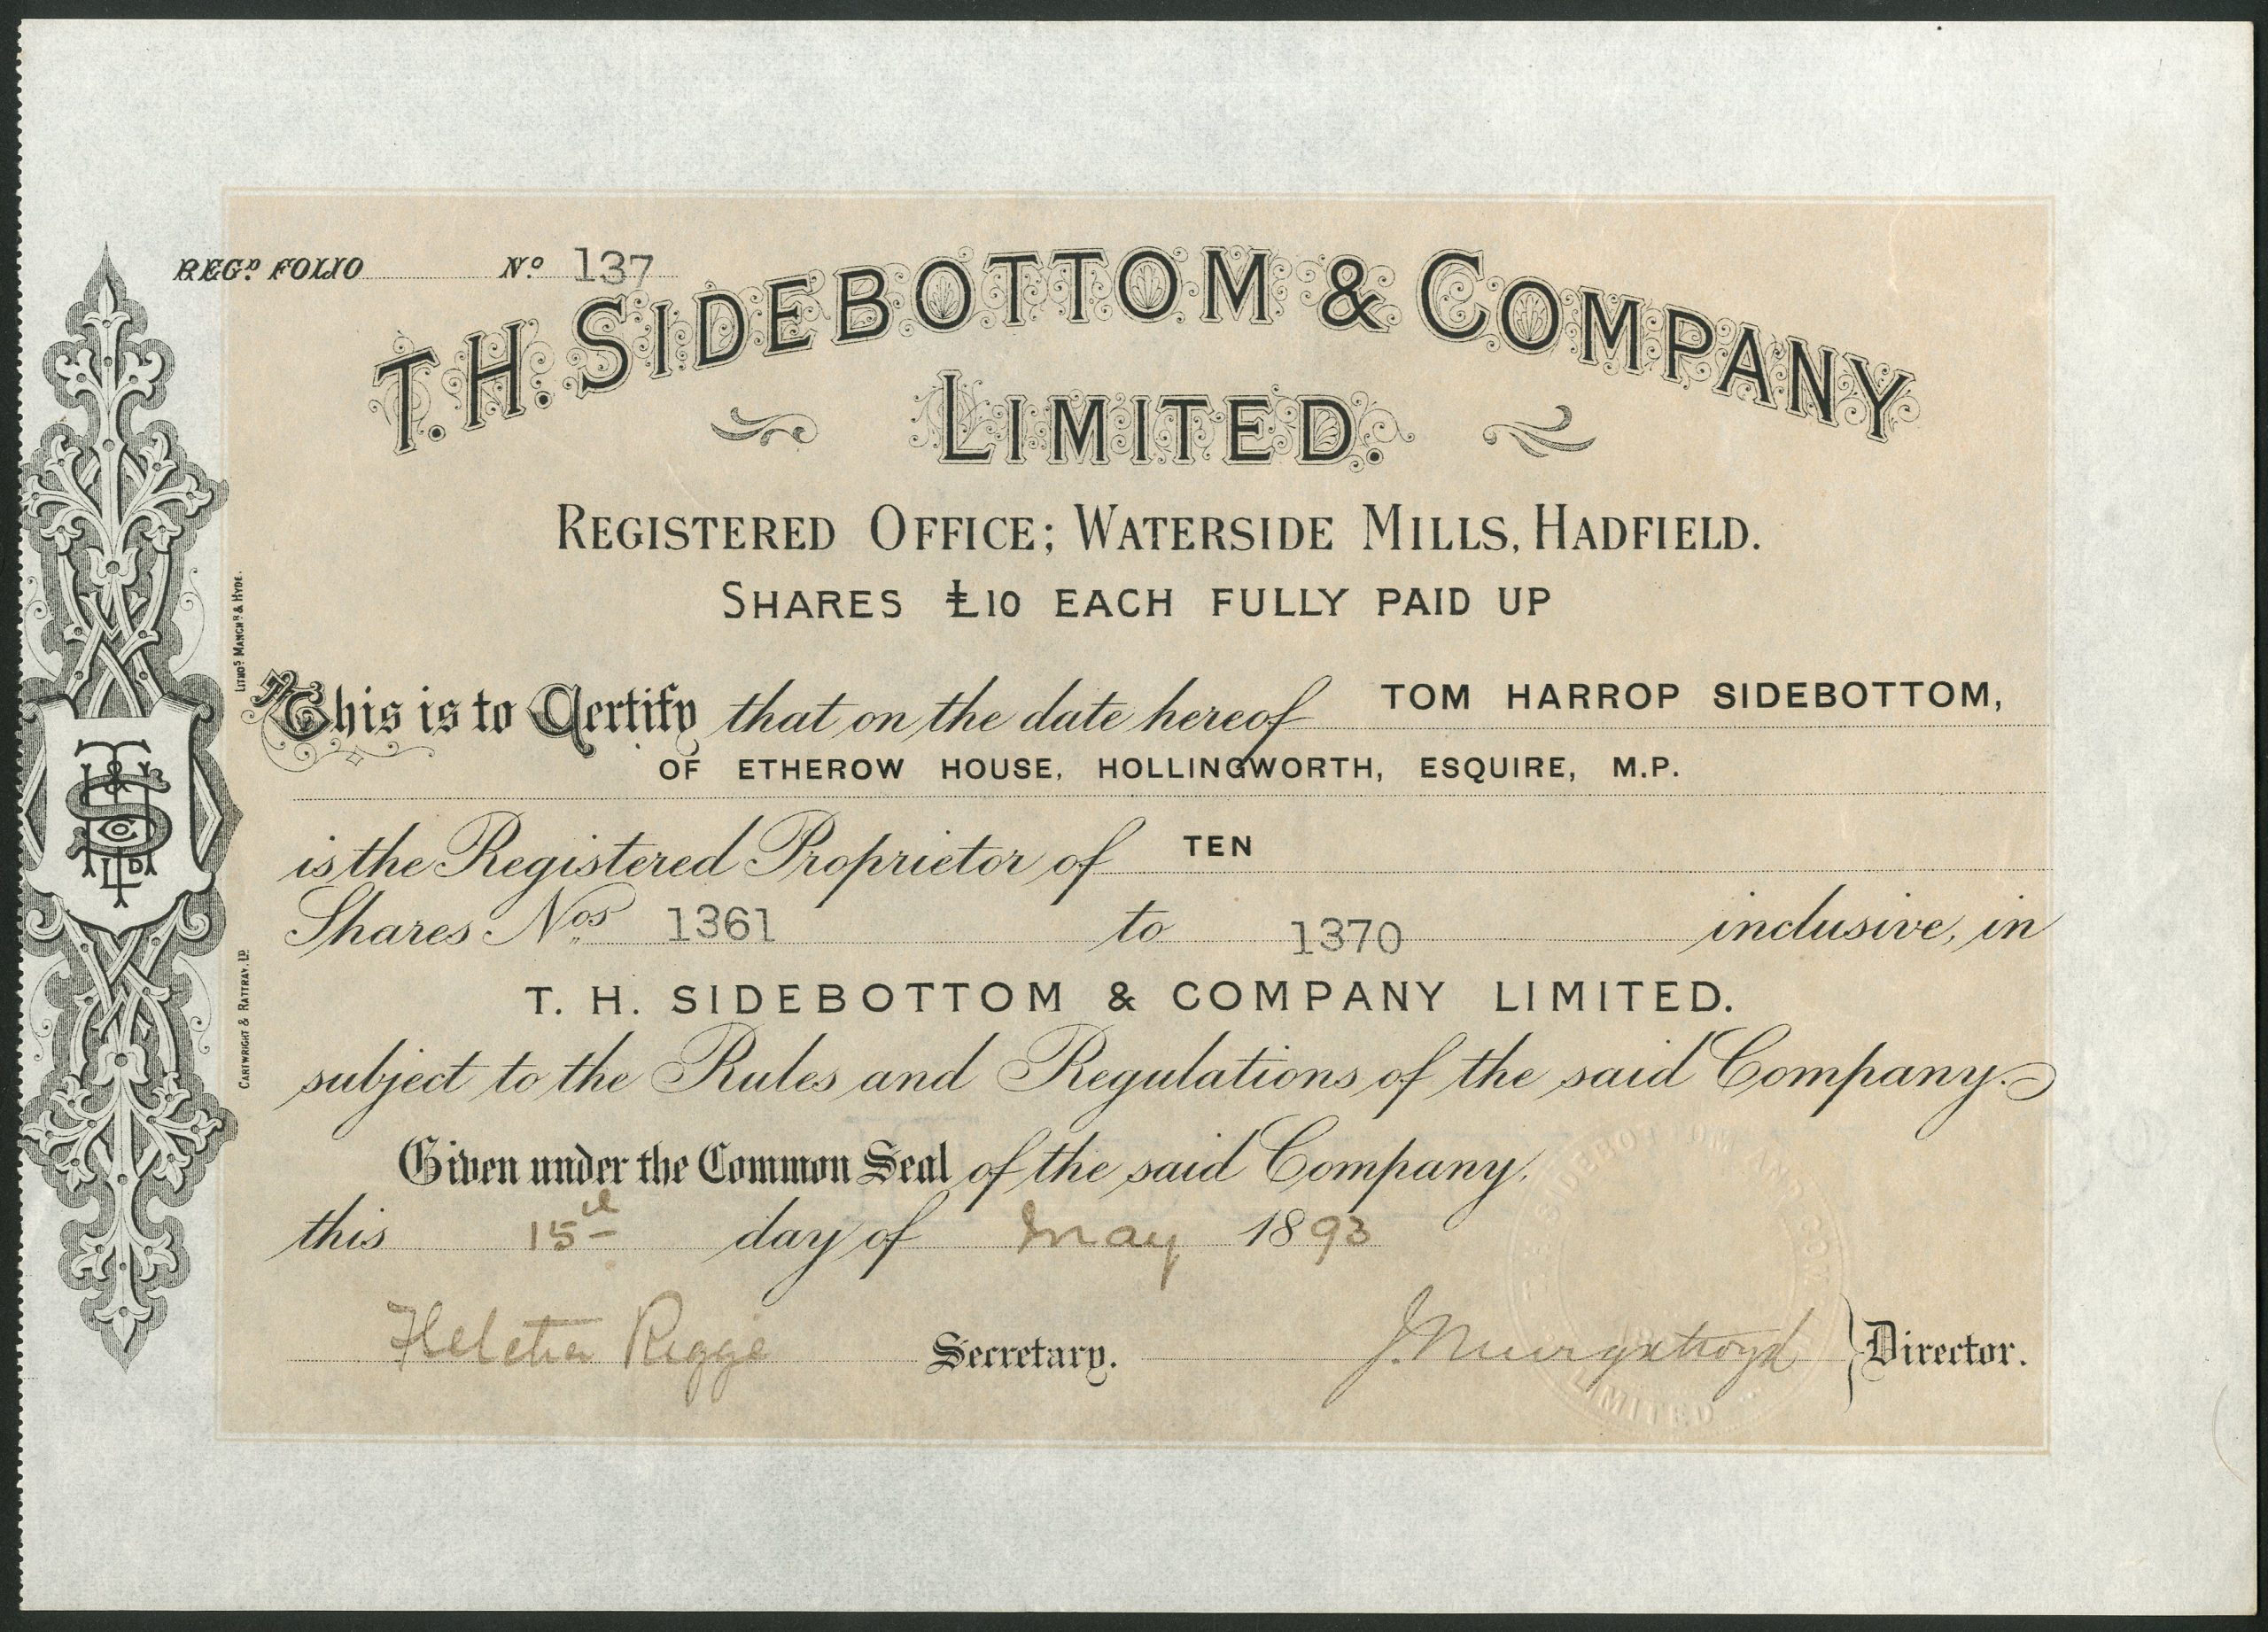 REGD. FOLIO No. 137
T. H. SIDEBOTTOM & COMPANY
LIMITED.
REGISTERED OFFICE; WATERSIDE MILLS, HADFIELD.
SHARES £10 EACH FULLY PAID UP
This is to Certify that on the date hereof TOM HARROP SIDEBOTTOM,
OF ETHEROW HOUSE, HOLLINGWORTH, ESQUIRE, M.P.
is the Registered Proprietor of TEN
Shares Nos. 1361 to 1370 inclusive, in
T. H. SIDEBOTTOM & COMPANY LIMITED.
subject to the Rules and Regulations of the said Company.
Given under the Common Seal of the said Company,
this 15th day of May 1893
Secretary. J. Murgatroyd Director.
CARTWRIGHT & RATTRAY, LD.
LITHOS. MANCHR. & HYDE.
LIMITED